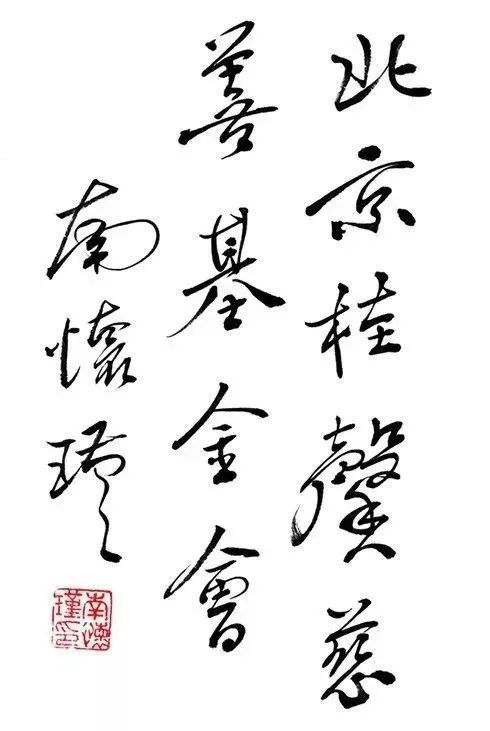 北京桂馨慈
善基金會
南懷瑾
南懷瑾印